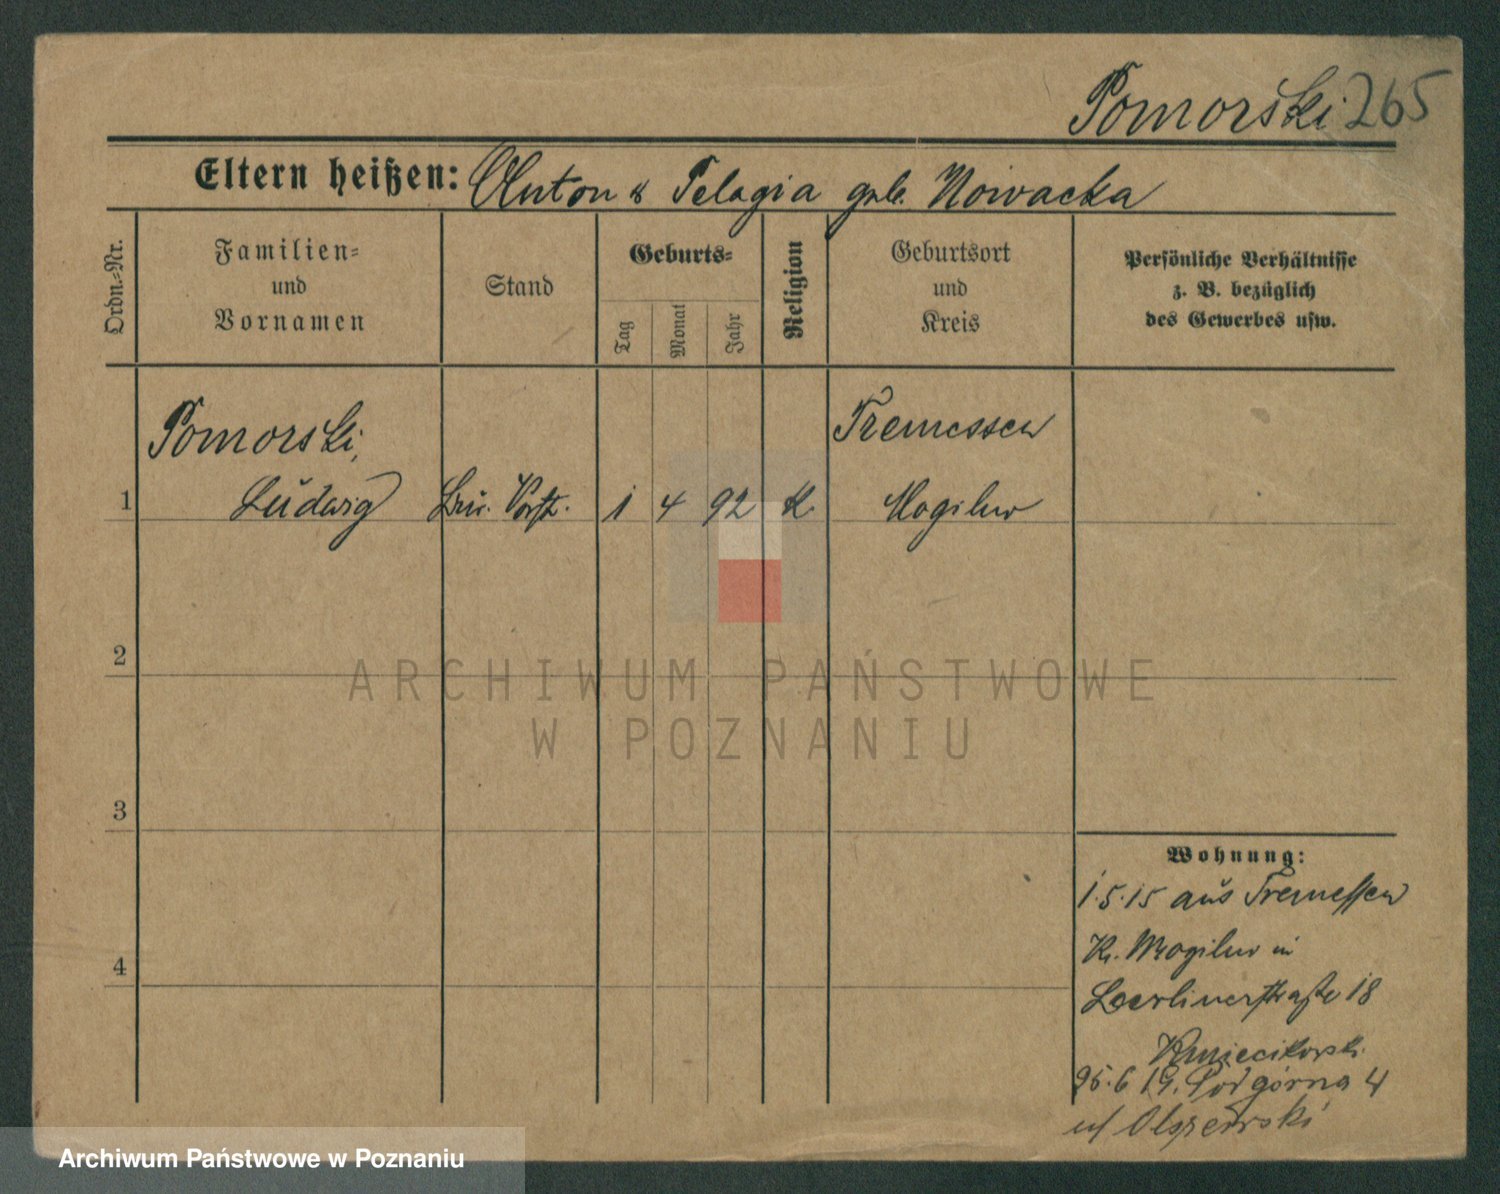 Pomorski 265
Eltern heißen: Anton & Pelagia geb. Nowacka
Ordn.-Nr.
Familien-
und
Vornamen
Stand
Geburts-
Tag
Monat
Jahr
Religion
Geburtsort
und
Kreis
Persönliche Verhältnisse
z. B. bezüglich
des Gewerbes usw.
Pomorski,
Tremessen
1 Ludwig 1 4 92 K. Mogilno
2
3
4
Wohnung:
1.5.15 aus Tremessen
Kr. Mogilno in
Berlinerstraße 18
Kmiecikowski
25.6.19. Podgórna 4
b/ Olszewski
ARCHIWUM PAŃSTWOWE
W POZNANIU
Archiwum Państwowe w Poznaniu